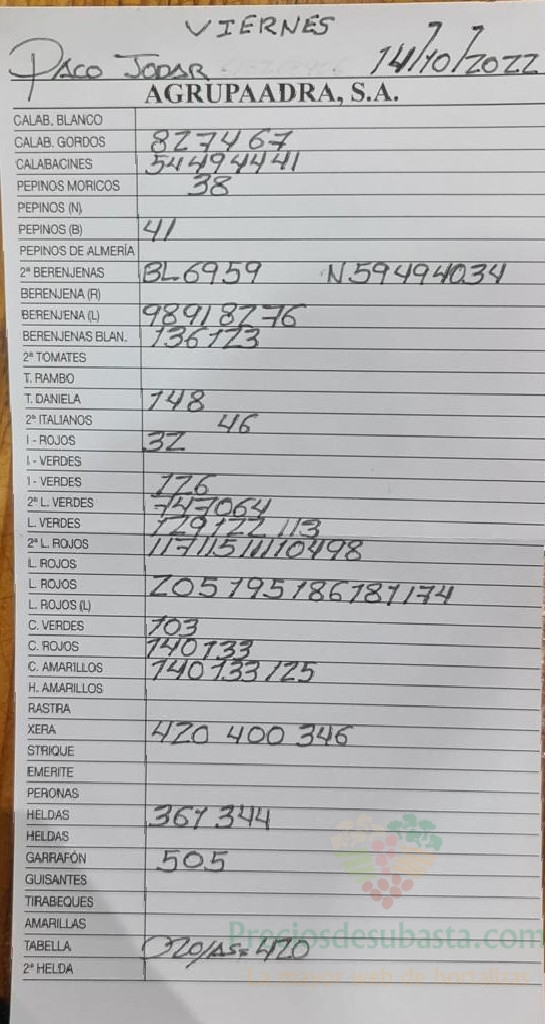 VIERNES
PACO JODAR 14/10/2022
AGRUPAADRA, S.A.
CALAB. BLANCO
CALAB. GORDOS 827467
CALABACINES 54494441
PEPINOS MORICOS 38
PEPINOS (N)
PEPINOS (B) 41
PEPINOS DE ALMERÍA
2ª BERENJENAS BL6959 N59494034
BERENJENA (R)
BERENJENA (L) 98918276
BERENJENAS BLAN. 136123
2ª TOMATES
T. RAMBO
T. DANIELA 148
2ª ITALIANOS 46
I - ROJOS 32
I - VERDES
I - VERDES 126
2ª L. VERDES 747064
L. VERDES 129122 113
2ª L. ROJOS
L. ROJOS
L. ROJOS 205195186181174
L. ROJOS (L)
C. VERDES 103
C. ROJOS 140133
C. AMARILLOS 140133125
H. AMARILLOS
RASTRA
XERA 420 400 346
STRIQUE
EMERITE
PERONAS
HELDAS 367344
HELDAS
GARRAFÓN 505
GUISANTES
TIRABEQUES
AMARILLAS
Preciosdesubasta.com
TABELLA 420
La mayor web de hortalizas
2ª HELDA